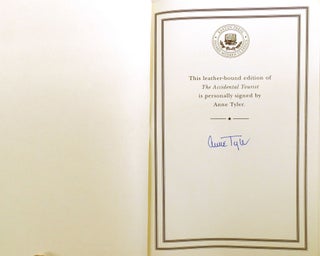 This leather-bound edition of
The Accidental Tourist
is personally signed by
Anne Tyler.
Anne Tyler